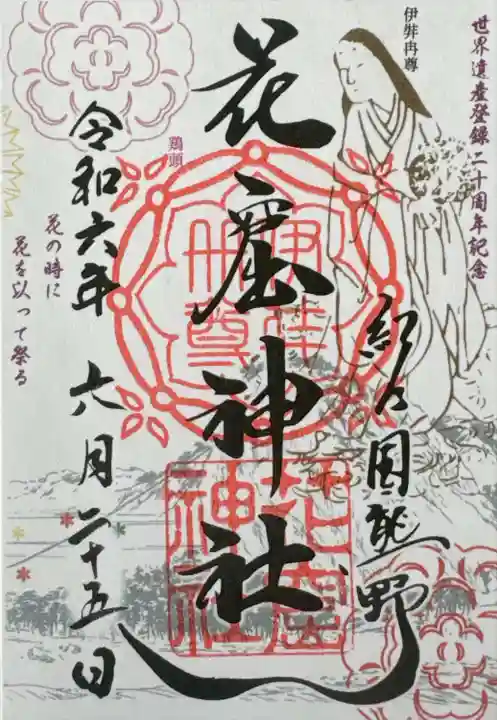 世界遺産登録二十周年記念
伊弉冉尊
紀乃国熊野
花窟神社
鶏頭
伊弉冉尊
花窟神社
令和六年 六月二十五日
花の時に
花を以って祭る